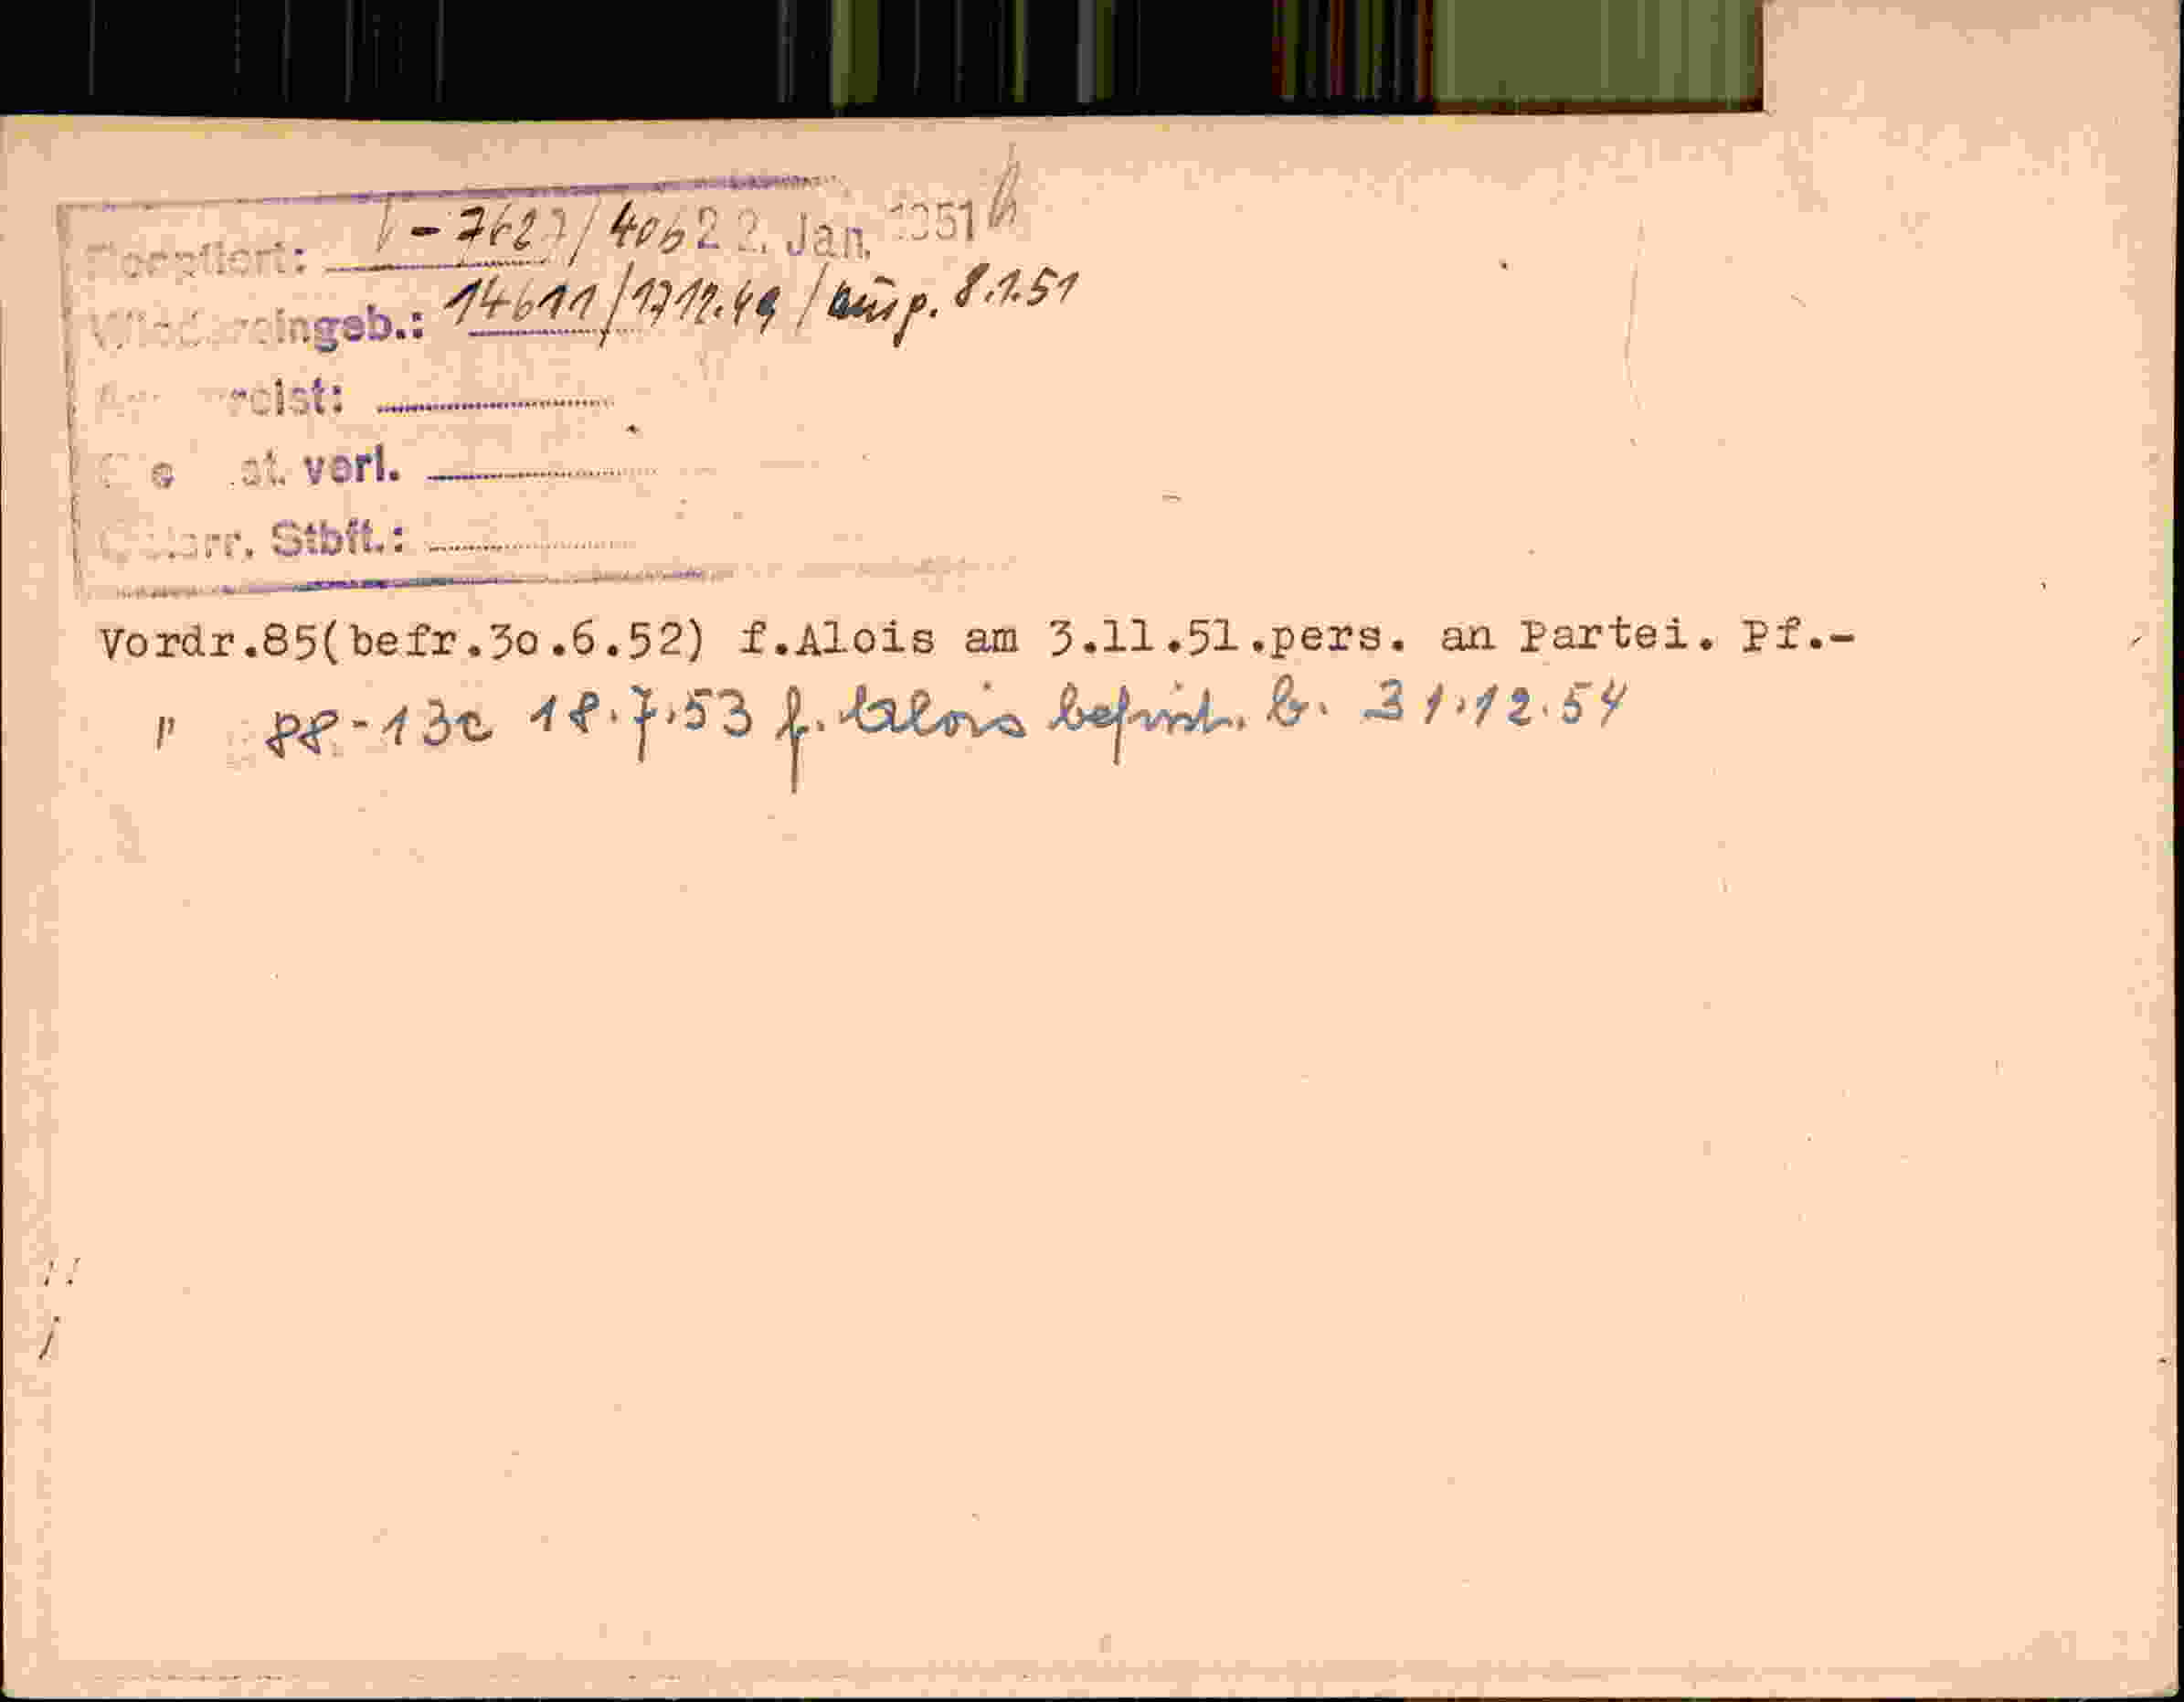 - 7627/406 22. Jan. 1951
Wiedereingeb.: 14611/1712.49/ausg. 8.1.51
verl.
Stbft.:
Vordr.85(befr.30.6.52) f.Alois am 3.11.51.pers. an Partei. Pf.-
" 88-13c 18.7.53 f. Alois befrist. b. 31.12.54